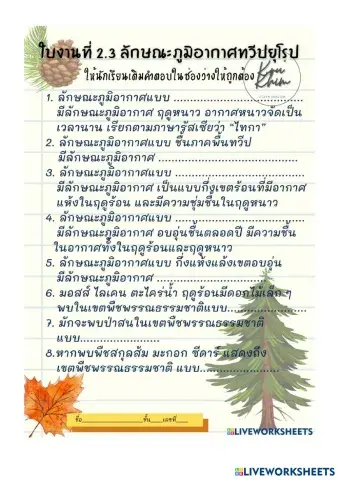 ใบงานที่ 2.3 ลักษณะภูมิอากาศทวีปยุโรป
ให้นักเรียนเติมคำตอบในช่องว่างให้ถูกต้อง
Kru
Khim
1. ลักษณะภูมิอากาศแบบ ........................................
มีลักษณะภูมิอากาศ ฤดูหนาว อากาศหนาวจัดเป็น
เวลานาน เรียกตามภาษารัสเซียว่า “ไทกา”
2. ลักษณะภูมิอากาศแบบ ชื้นภาคพื้นทวีป
มีลักษณะภูมิอากาศ ........................................
3. ลักษณะภูมิอากาศแบบ ........................................
มีลักษณะภูมิอากาศ เป็นแบบกึ่งเขตร้อนที่มีอากาศ
แห้งในฤดูร้อน และมีความชุ่มชื้นในฤดูหนาว
4. ลักษณะภูมิอากาศแบบ ........................................
มีลักษณะภูมิอากาศ อบอุ่นชื้นตลอดปี มีความชื้น
ในอากาศทั้งในฤดูร้อนและฤดูหนาว
5. ลักษณะภูมิอากาศแบบ กึ่งแห้งแล้งเขตอบอุ่น
มีลักษณะภูมิอากาศ ................................
6. มอสส์ ไลเคน ตะไคร่น้ำ ฤดูร้อนมีดอกไม้เล็ก ๆ
พบในเขตพืชพรรณธรรมชาติแบบ.......................
7. มักจะพบป่าสนในเขตพืชพรรณธรรมชาติ
แบบ.......................
8.หากพบพืชสกุลส้ม มะกอก ซีดาร์ แสดงถึง
เขตพืชพรรณธรรมชาติ แบบ.......................
ชื่อ____________________ชั้น____เลขที่____
LIVEWORKSHEETS
LIVEWORKSHEETS